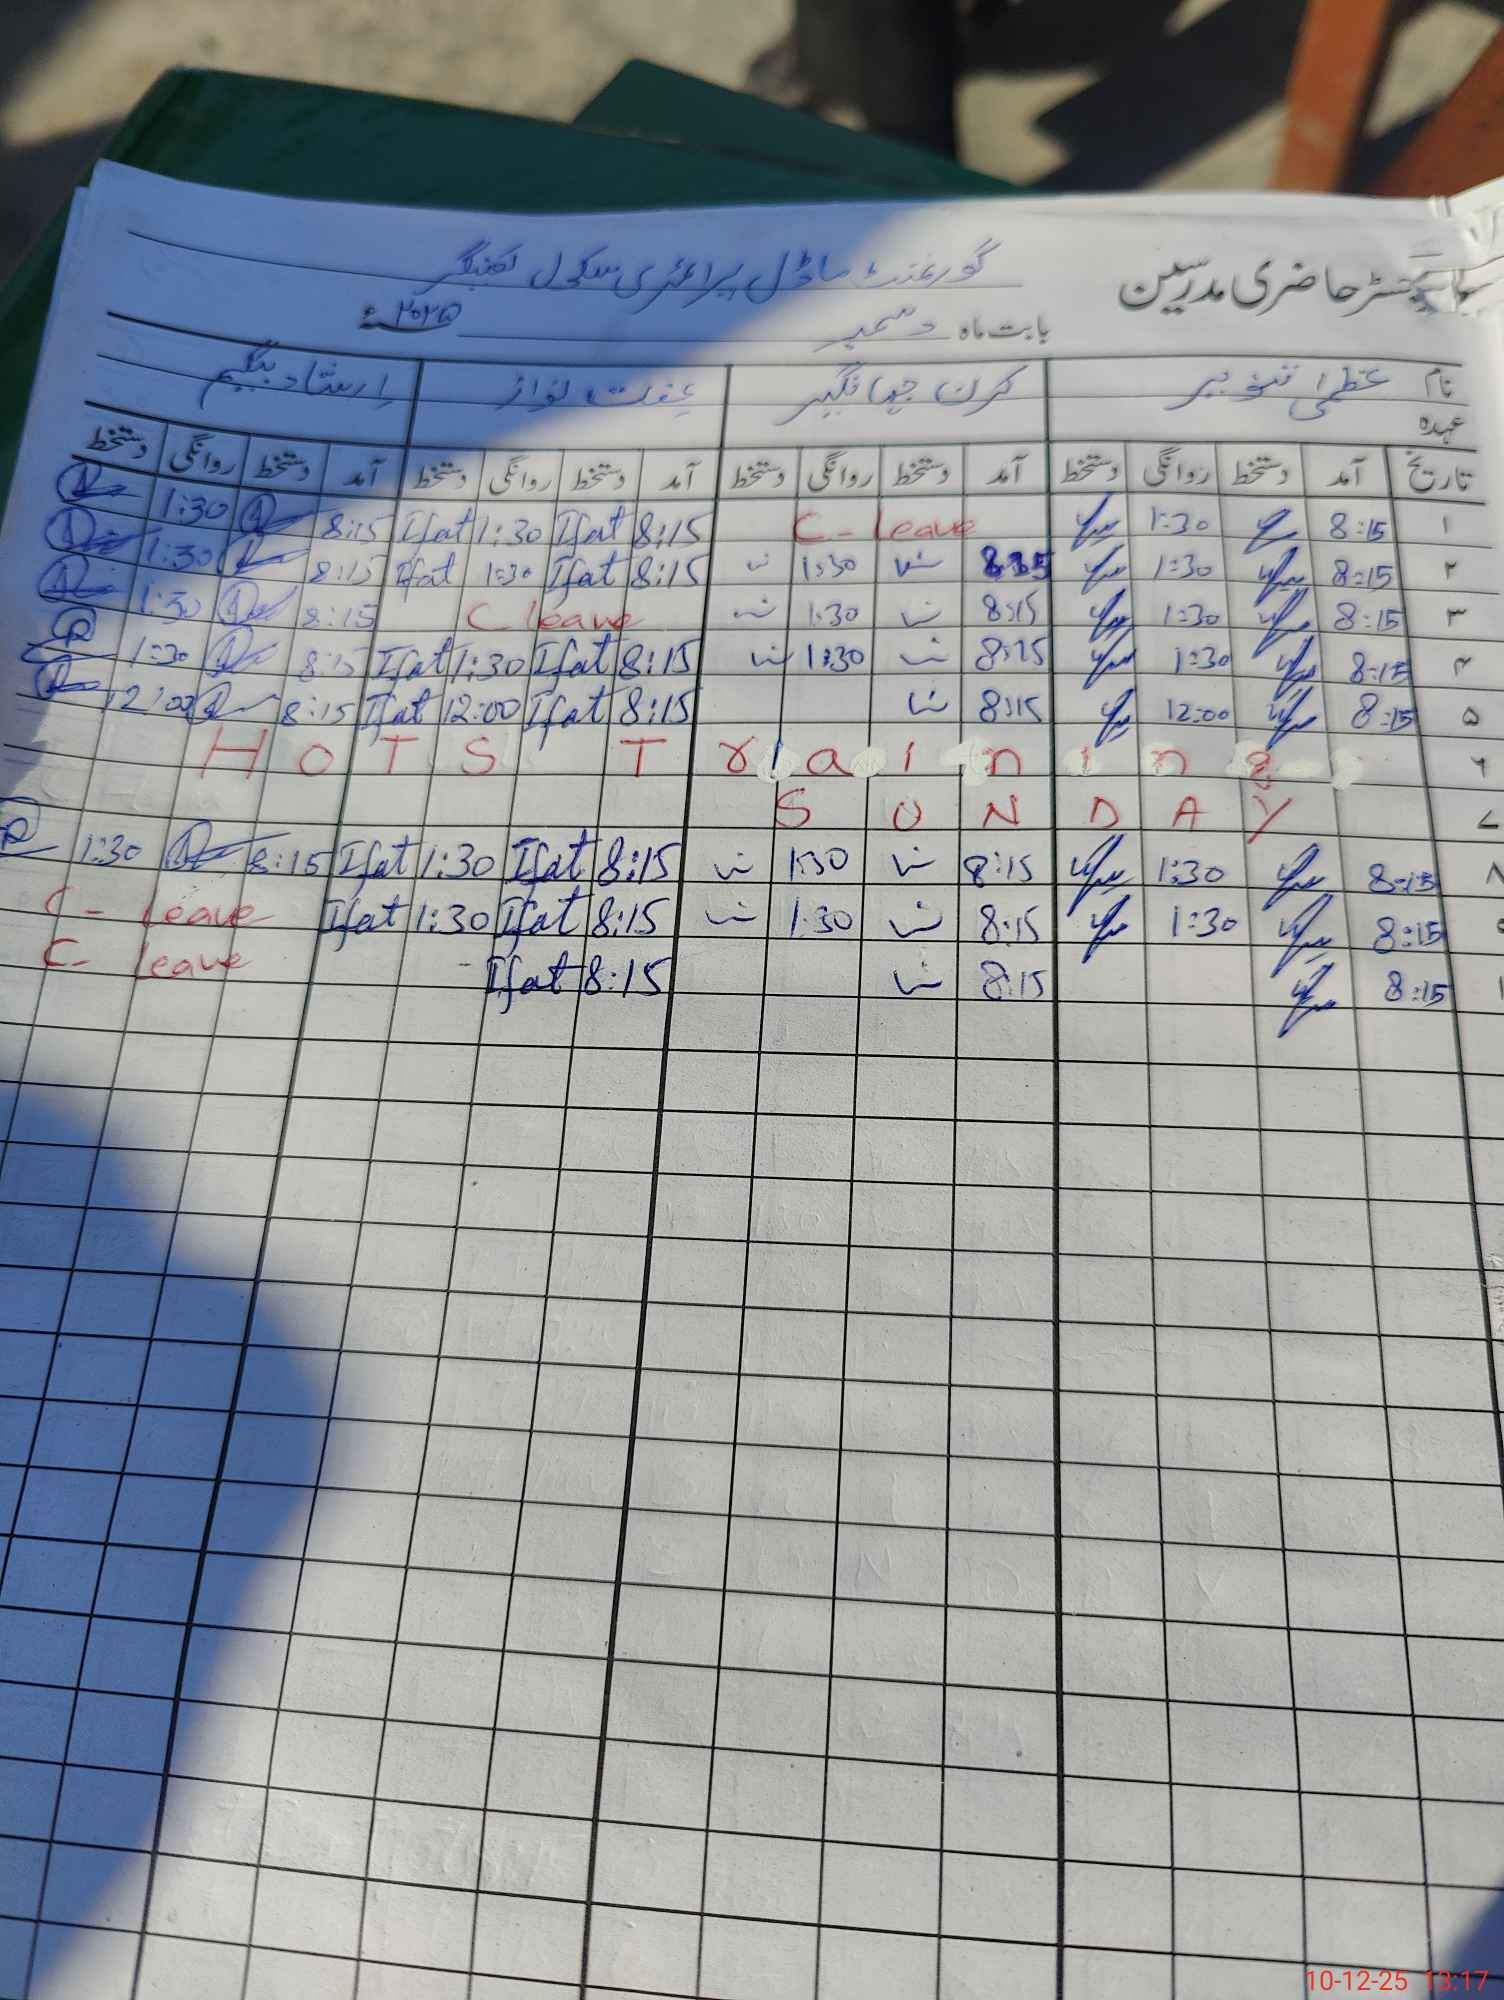 رجسٹر حاضری مدرسین گورنمنٹ ماڈل پرائمری سکول
بابت ماہ دسمبر ۲۰۲۵ء
نام عظمیٰ تنویر کرن جہانگیر عفت نواز ارشاد بیگم
عہدہ
تاریخ آمد دستخط روانگی دستخط آمد دستخط روانگی دستخط آمد دستخط روانگی دستخط آمد دستخط روانگی دستخط
۱ 8:15 1:30 C-leave 8:15 Ifat 1:30 Ifat 8:15 1:30
۲ 8:15 1:30 1:30 8:15 Ifat 1:30 Ifat 8:15 1:30
۳ 8:15 1:30 8:15 1:30 C leave 8:15 1:30
۴ 8:15 1:30 1:30 8:15 Ifat 1:30 Ifat 8:15 1:30
۵ 8:15 12:00 8:15 8:15 Ifat 12:00 Ifat 8:15 12:00
۶ HOTS Training
۷ SUNDAY
۸ 8:15 1:30 8:15 1:30 8:15 Ifat 1:30 Ifat 8:15 1:30
8:15 1:30 8:15 1:30 8:15 Ifat 1:30 Ifat C- leave
8:15 8:15 8:15 Ifat C- leave
10-12-25 13:17